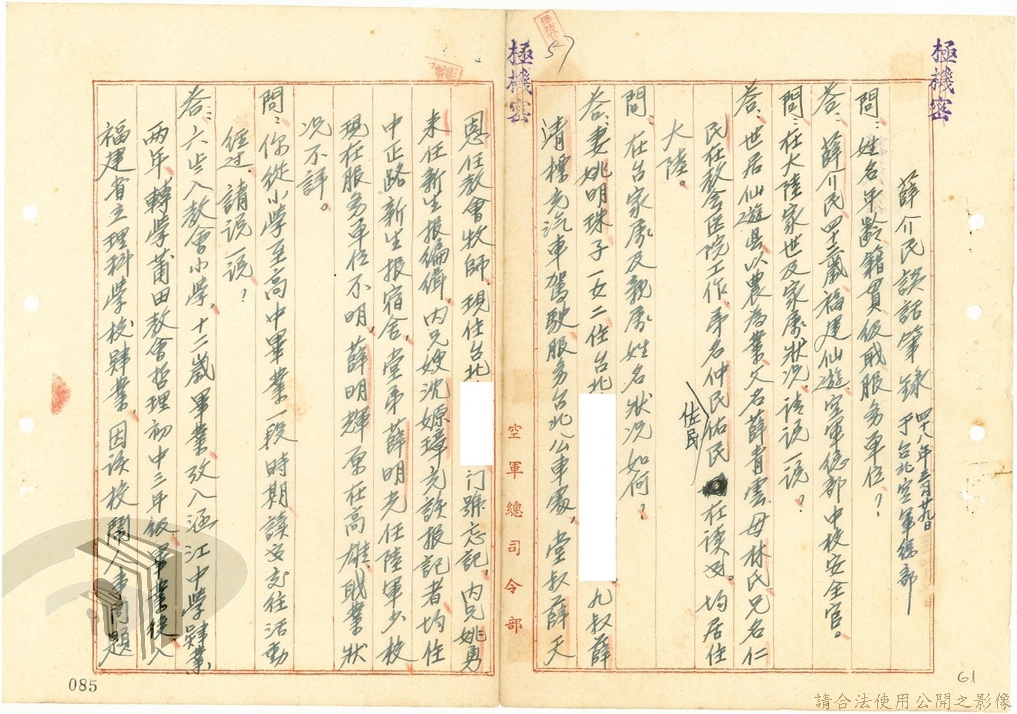 極機密
薛介民談話筆錄 四十八年三月廿九日于台北空軍總部
問：姓名年齡籍貫級職服務單位？
答：薛介民四十二歲福建仙遊空軍總部中校安全官。
問：在大陸家世及家庭狀況請說一說？
答：世居仙遊縣以農為業父名薛青雲母林氏兄名仁
民在教會医院工作，弟名仲民佑民佐民在读书。均居住
大陸。
問：在台家屬及親屬姓名狀况如何？
答：妻姚明珠子一女二住台北 九叔薛
清標充汽車駕駛服務台北公車處，堂叔薛天
空軍總司令部
極機密
57
恩任教會牧師。現住台北 门牌忘記。内兄姚勇
来任新生报編緝，内兄嫂沈嫄璋充該报記者均住
中正路新生报宿舍，堂弟薛明光任陸軍少校
現在服务單位不明，薛明輝原在高雄職業狀
况不詳。
問：你從小学至高中畢業一段時期讀书交往活動
經过，請說一說？
答：六岁入教會小学，十二歲畢業改入涵江中学肄業
两年，轉学莆田教會哲理初中三年級畢業後入
福建省立理科学校肄業，因该校鬧人事問題
085
61
請合法使用公開之影像